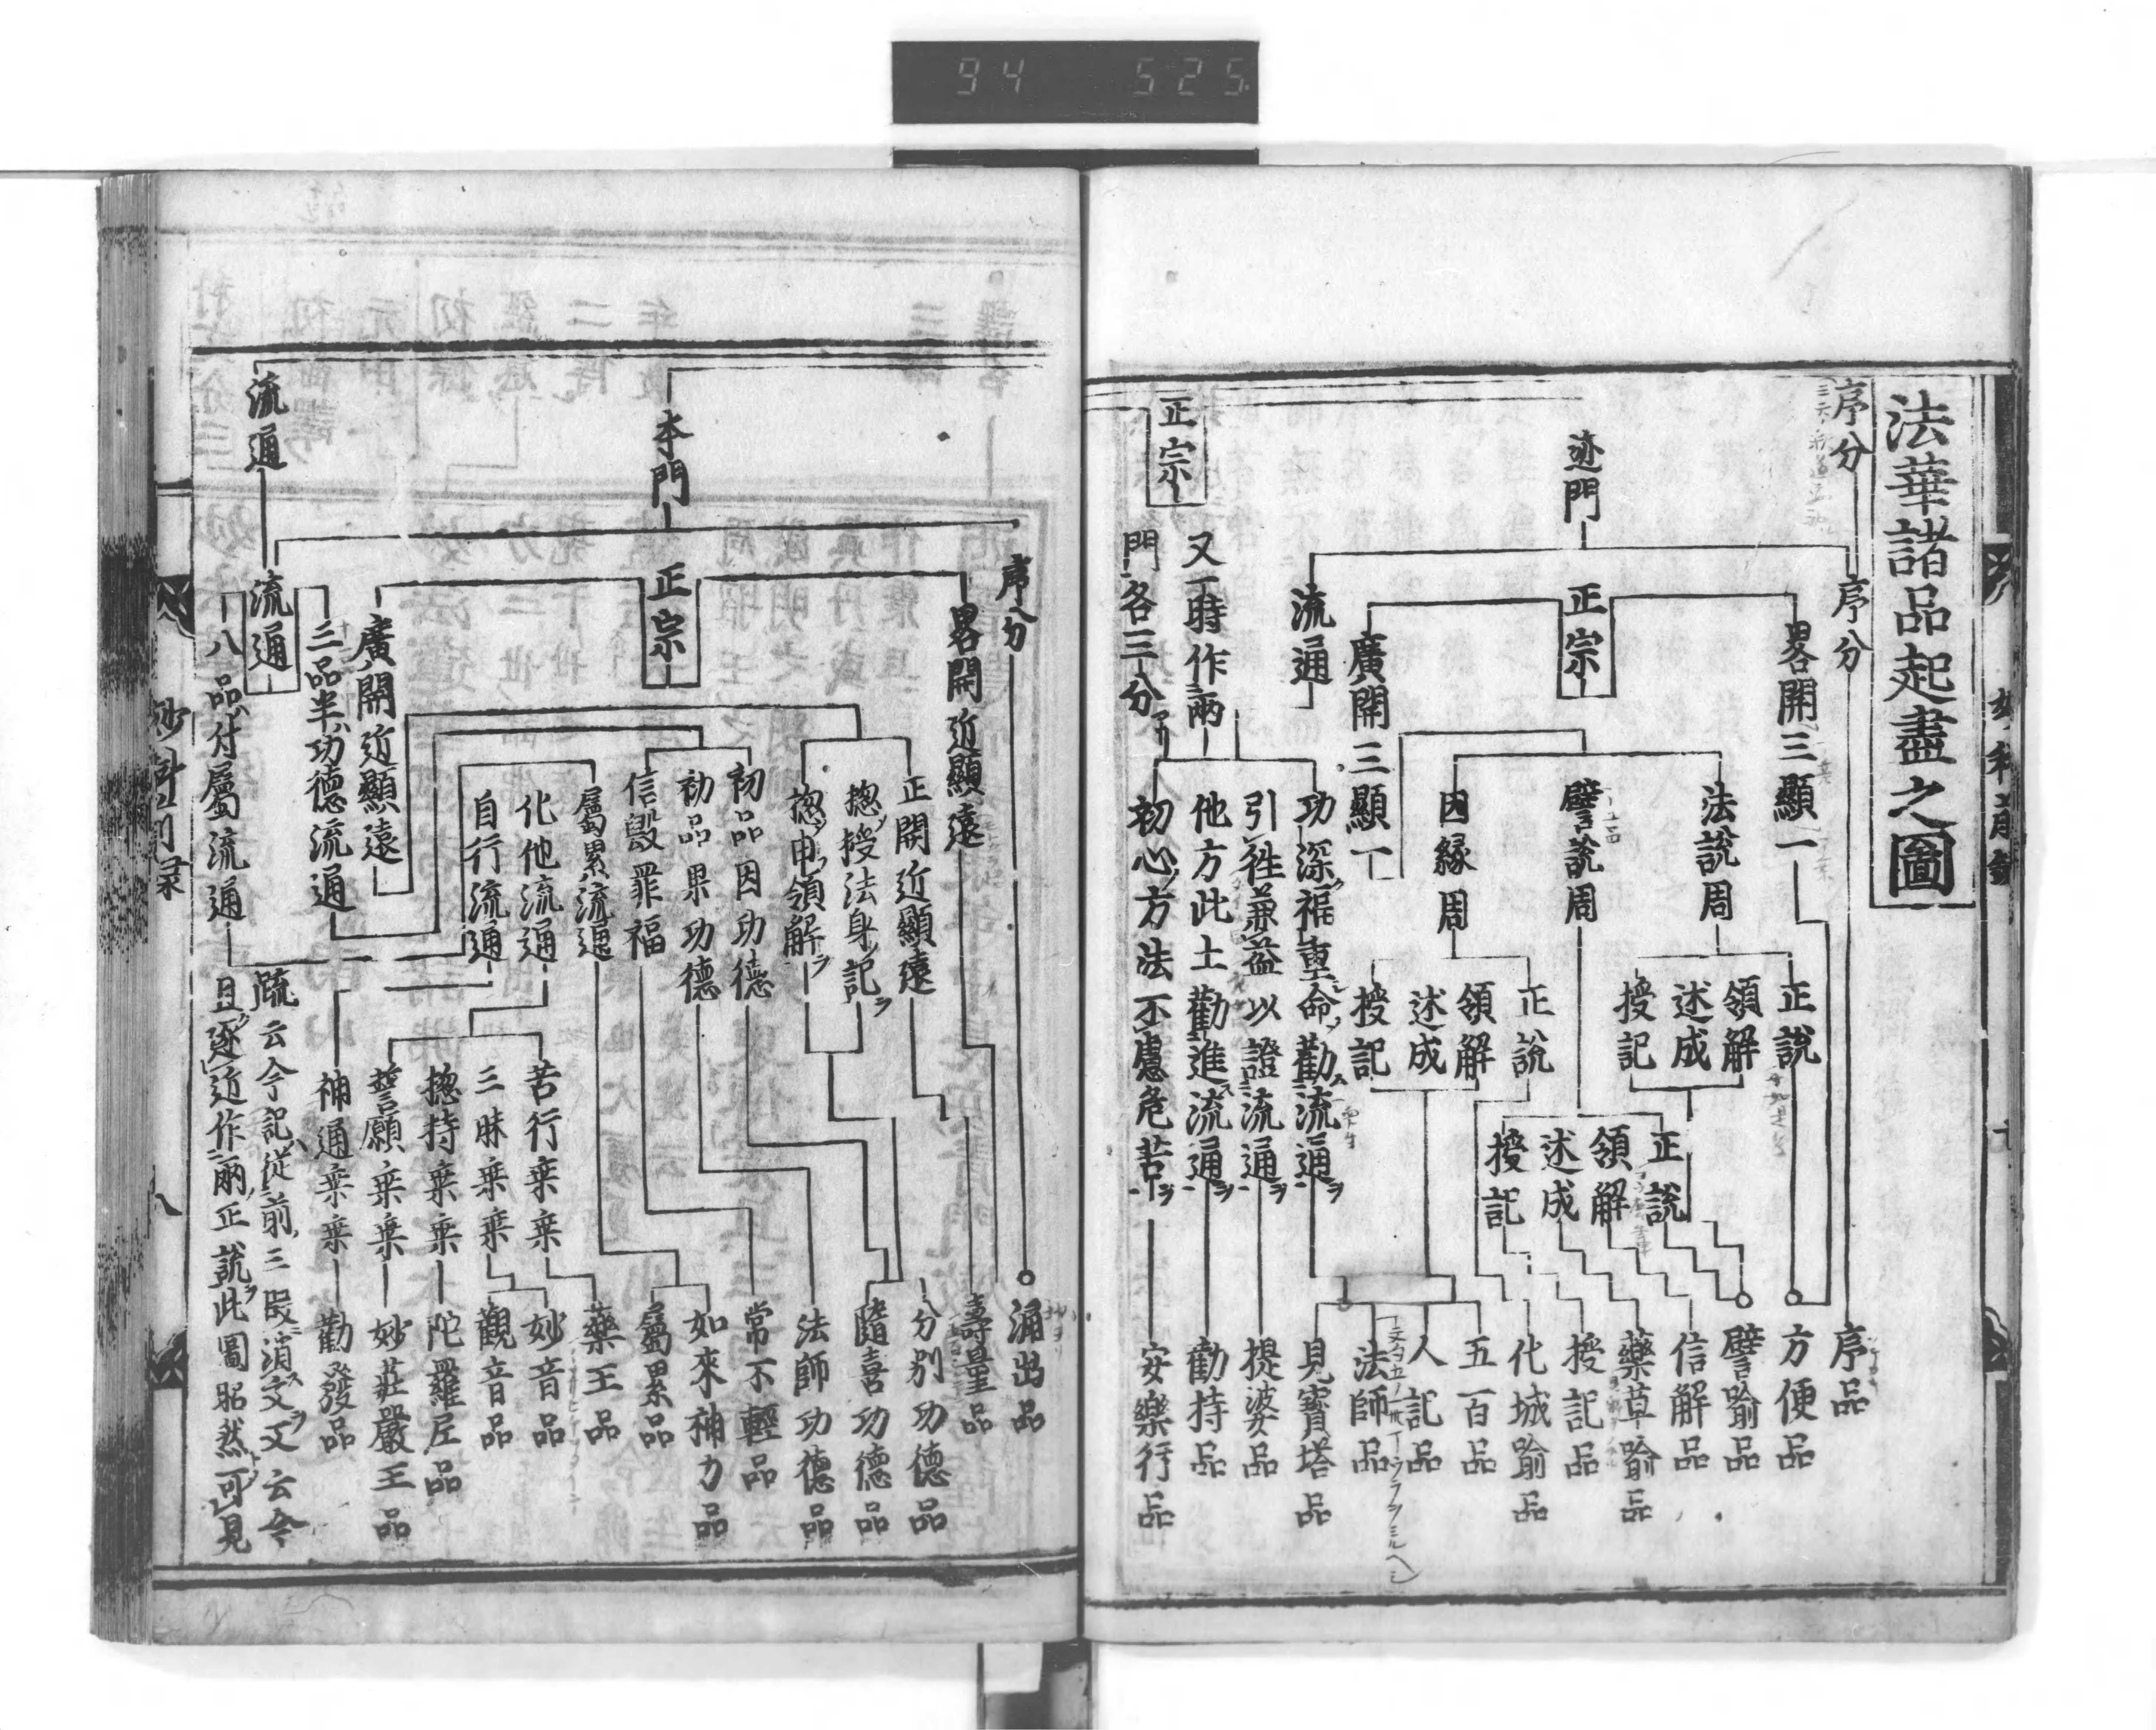 94 525
法華諸品起盡之圖
序分
迹門
正宗
序分
正宗
流通
畧開三顯一
廣開三顯一
又一時作兩
門各三分
法說周
譬說周
因緣周
功深福重命勸流通
引往兼益以證流通
他方此土勸進流通
初心方法不慮危苦
正說
領解
述成
授記
正說
領解
述成
授記
正說
領解
述成
授記
序品
方便品
譬喻品
信解品
藥草喻品
授記品
化城喻品
五百品
人記品
法師品
見寶塔品
提婆品
勸持品
安樂行品
本門
流通
序分
正宗
流通
畧開近顯遠
廣開近顯遠
三品半功德流通
八品付屬流通
正開近顯遠
揔授法身記
揔申領解
初品因功德
初品果功德
信毀罪福
屬累流通
化他流通
自行流通
苦行乘乘
三昧乘乘
揔持乘乘
誓願乘乘
神通乘乘
涌出品
壽量品
分別功德品
隨喜功德品
法師功德品
常不輕品
如來神力品
屬累品
藥王品
妙音品
觀音品
陀羅尼品
妙莊嚴王品
勸發品
疏云今記從前三段消文又云今
且逐近作兩正說此圖昭然可見
八